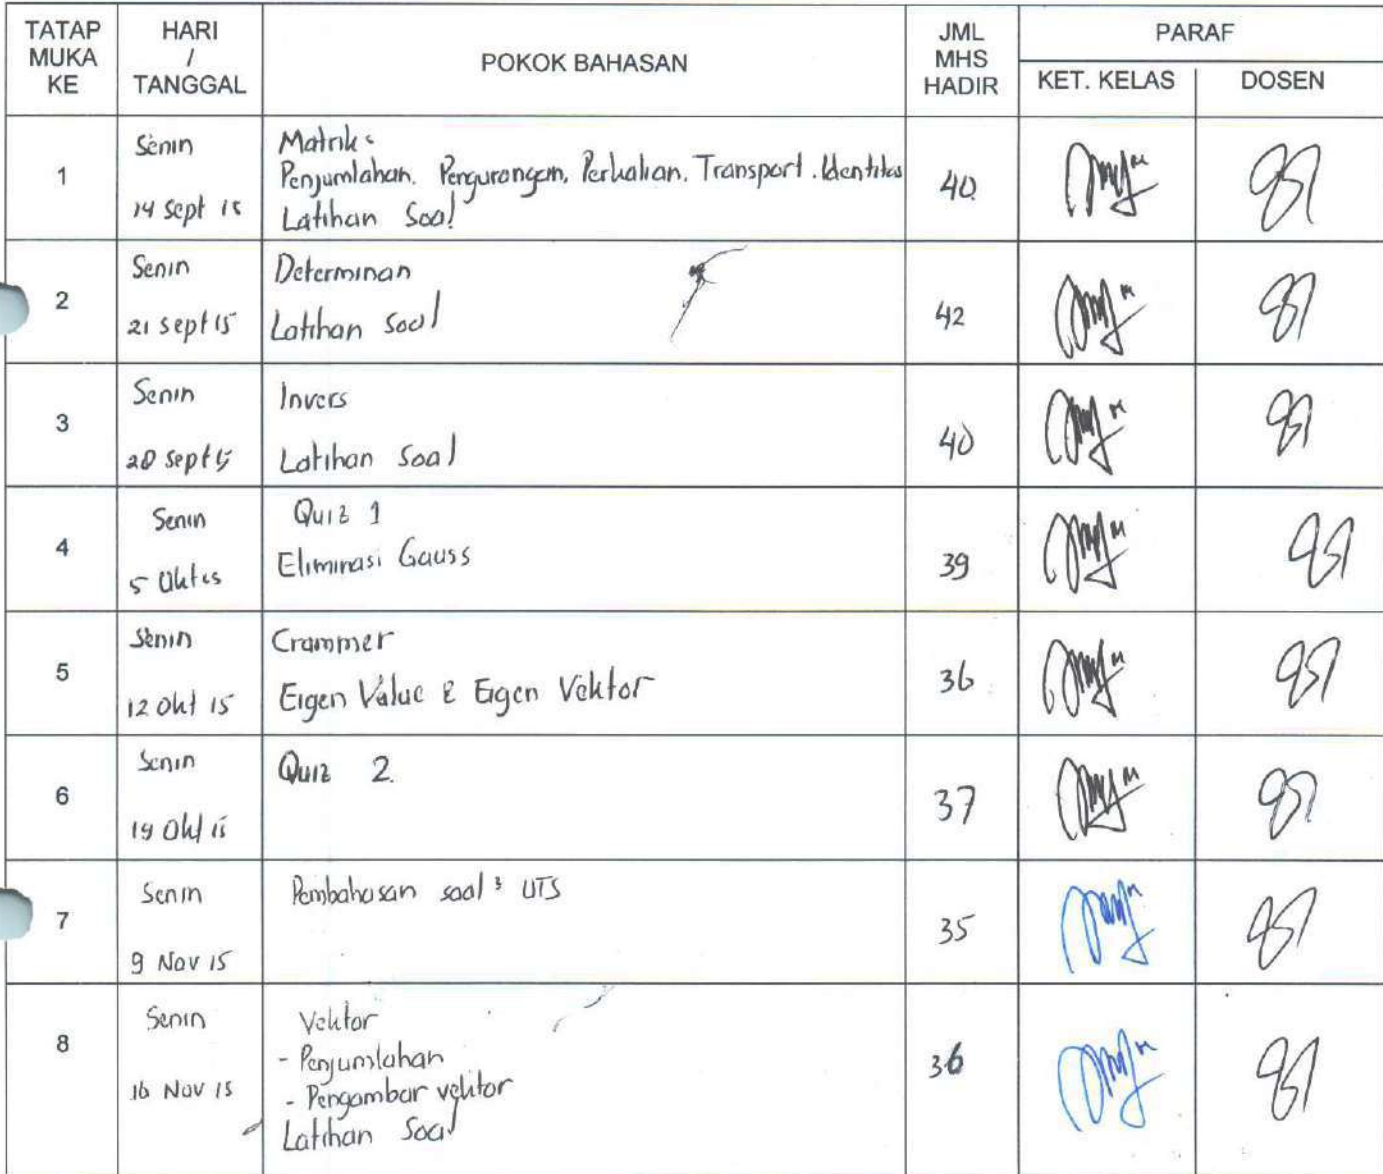 TATAP MUKA KE
HARI / TANGGAL
POKOK BAHASAN
JML MHS HADIR
PARAF
KET. KELAS
DOSEN
1
Senin
14 Sept 15
Matriks
Penjumlahan. Pengurangan, Perkalian. Transport. Identitas
Latihan Soal
40
2
Senin
21 Sept 15
Determinan
Latihan Soal
42
3
Senin
28 Sept 15
Invers
Latihan Soal
40
4
Senin
5 Okt 15
Quiz 1
Eliminasi Gauss
39
5
Senin
12 Okt 15
Crammer
Eigen Value & Eigen Vektor
36
6
Senin
19 Okt 15
Quiz 2
37
7
Senin
9 Nov 15
Pembahasan soal² UTS
35
8
Senin
16 Nov 15
Vektor
- Penjumlahan
- Pengambar vektor
Latihan Soal
36